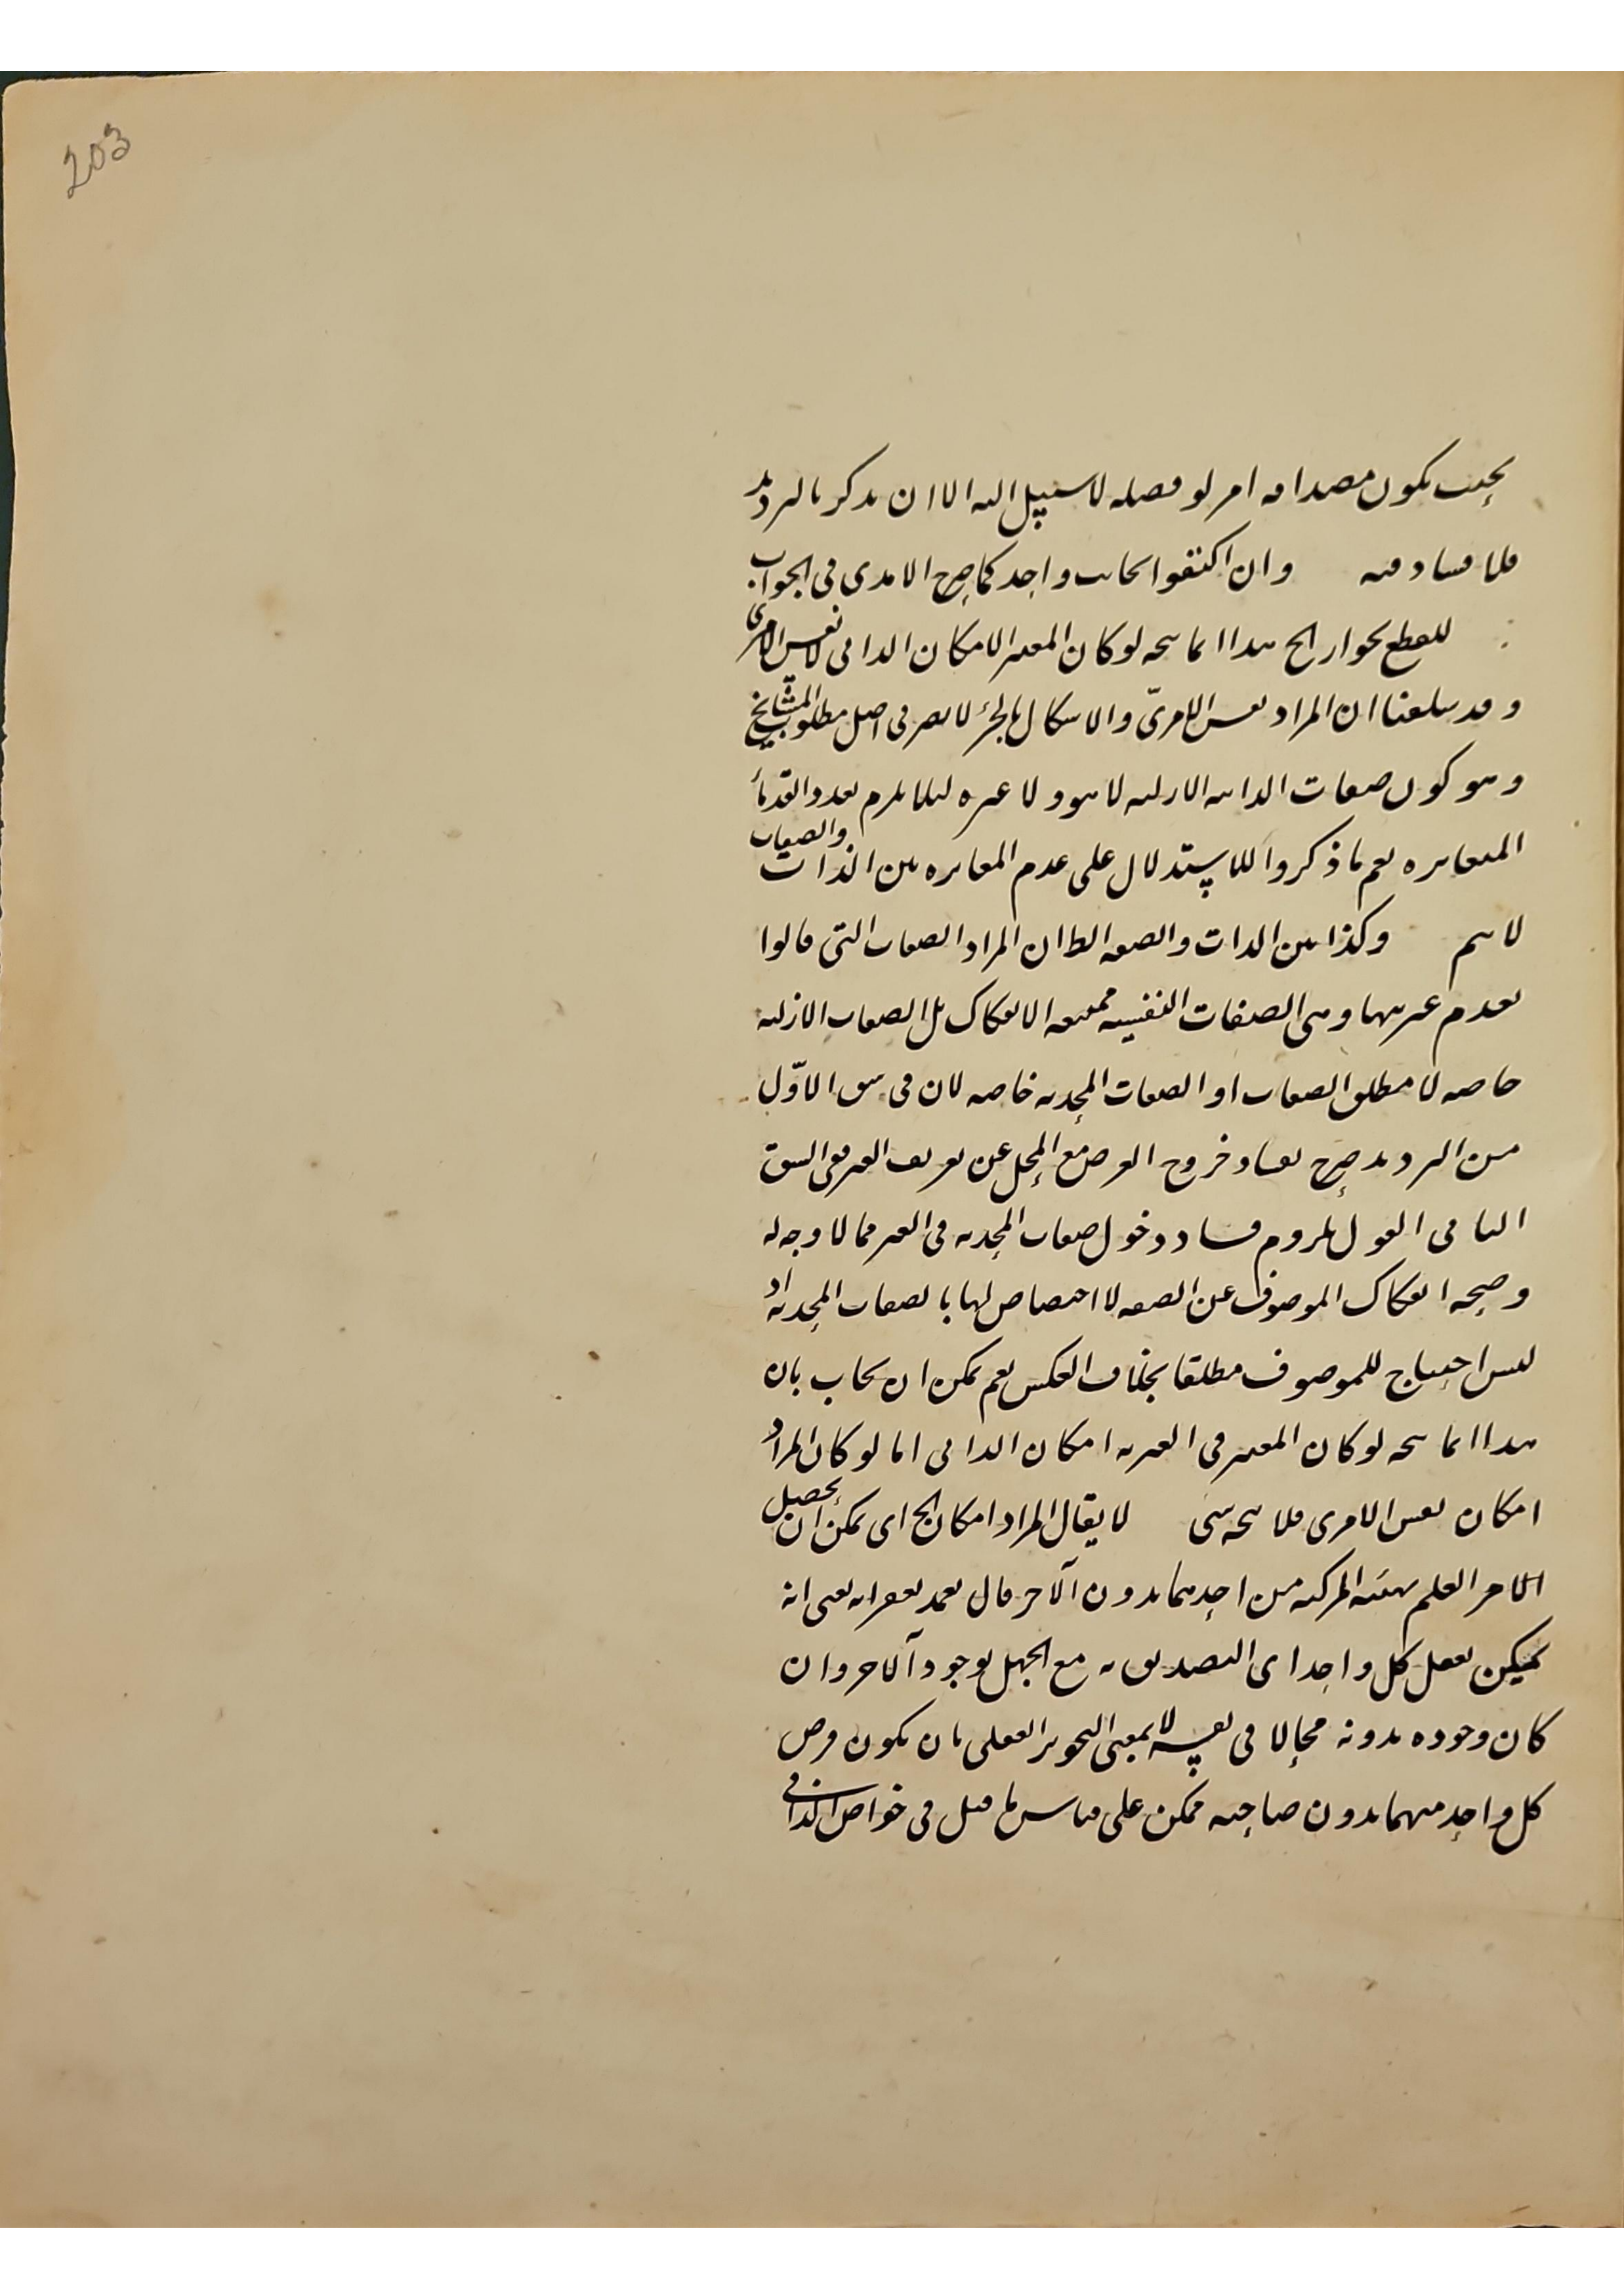 203
بحيث يكون مصداقه امر لو فصله لا سبيل اليه الا ان يذكر بالترديد
فلا فساد فيه وان اكتفوا بجانب واحد كما صرح الامدى فى الجواب
للقطع بجواز الخ هذا انما يتجه لو كان المعتبر الامكان الذاتى لا نفس الامرى
وقد سلفنا ان المراد نفس الامرىّ والاشكال بالجزء لا يضر فى اصل مطلوب المشايخ
وهو كون صفات الذاتيه الازليه لا هو ولا غيره لئلا يلزم تعدد القدماء
المتغايره نعم ما ذكروا للاستدلال على عدم المغايره بين الذات والصفات
لا يتم وكذا بين الذات والصفه الظ ان المراد الصفات التى قالوا
بعدم غيريتها وهى الصفات النفسيه ممتنعه الانفكاك بل الصفات الازليه
خاصه لا مطلق الصفات او الصفات المحدثه خاصه لان فى شق الاوّل
من الترديد صرح بفساد خروج العرض مع المحل عن تعريف الغير ففى الشق
الثانى القول بلزوم فساد دخول صفات المحدثه فى الغير مما لا وجه له
وصحه انفكاك الموصوف عن الصفه لا اختصاص لها بالصفات المحدثه اذ
ليس احتياج للموصوف مطلقا بخلاف العكس نعم يمكن ان يجاب بان
هذا انما يتجه لو كان المعتبر فى الغيريه امكان الذاتى اما لو كان المراد
امكان نفس الامرى فلا يتجه شى لا يقال المراد امكان الخ اى يمكن ان يحصل
الامر العلم بهيئه المركبه من احدهما بدون الآخر قال بعيد يعنى انه
يمكن تعقل كل واحد اى التصديق به مع الجهل بوجود الآخر وان
كان وجوده بدونه محالا فى نفسه لا بمعنى التجويز العقلى بان يكون فرض
كل واحد منهما بدون صاحبه ممكن على قياس ما قيل فى خواص الذاتى